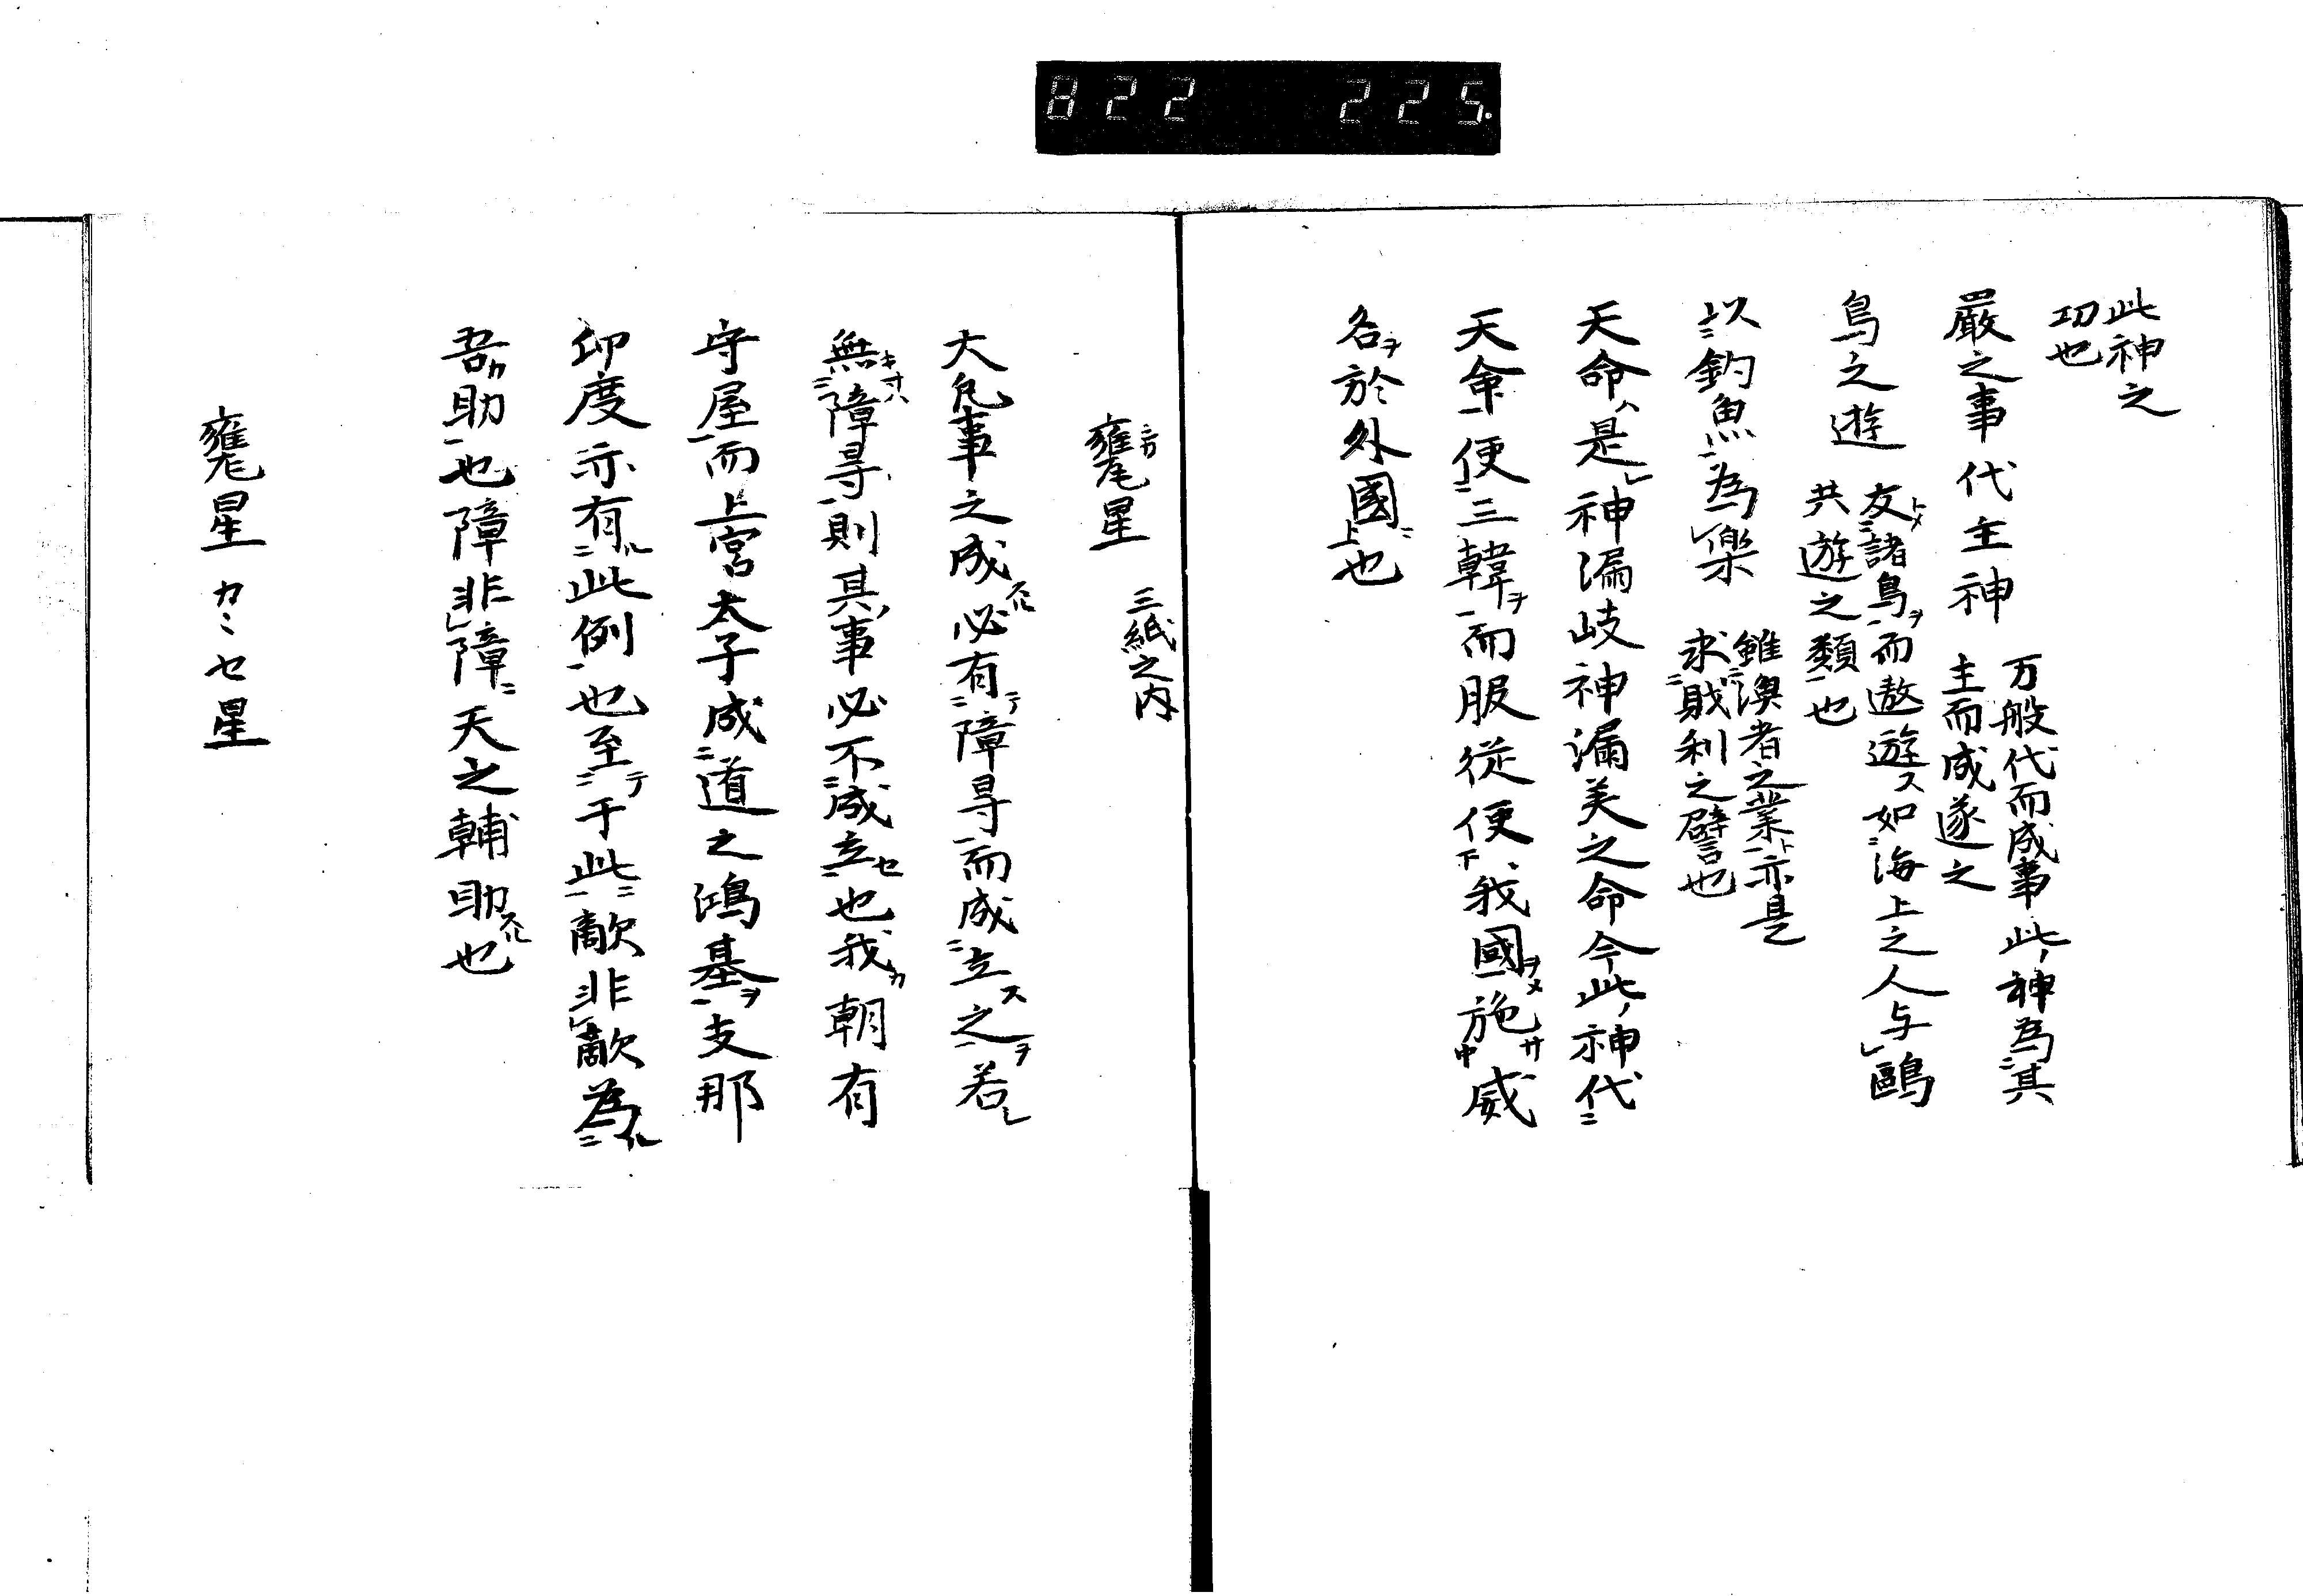 822 225.
此神之
功也
嚴之事代主神
万般代而成事此神為其
主而成遂之
鳥之遊
友諸鳥而遨遊如海上之人与鷗
共遊之類也
以釣魚為樂
雖漁者之業亦是
求賊利之譬也
天命是神漏岐神漏美之命今此神代
天命便三韓而服從便我國施威
各於外國也
星 三紙之内
大凡事之成必有障㝵而成立之若
無障㝵則其事必不成立也我朝有
守屋而上宮太子成道之鴻基支那
印度亦有此例也至于此敵非敵為
吾助也障非障天之輔助也
星 カミセ星